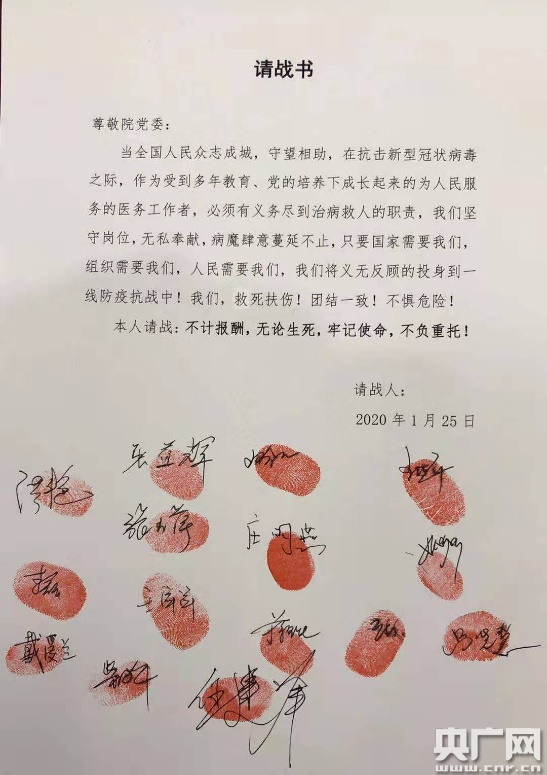 请战书
尊敬院党委：
当全国人民众志成城，守望相助，在抗击新型冠状病毒
之际，作为受到多年教育、党的培养下成长起来的为人民服
务的医务工作者，必须有义务尽到治病救人的职责，我们坚
守岗位，无私奉献，病魔肆意蔓延不止，只要国家需要我们，
组织需要我们，人民需要我们，我们将义无反顾的投身到一
线防疫抗战中！我们，救死扶伤！团结一致！不惧危险！
本人请战：不计报酬，无论生死，牢记使命，不负重托！
请战人：
2020 年 1 月 25 日
央广网
www.cnr.cn